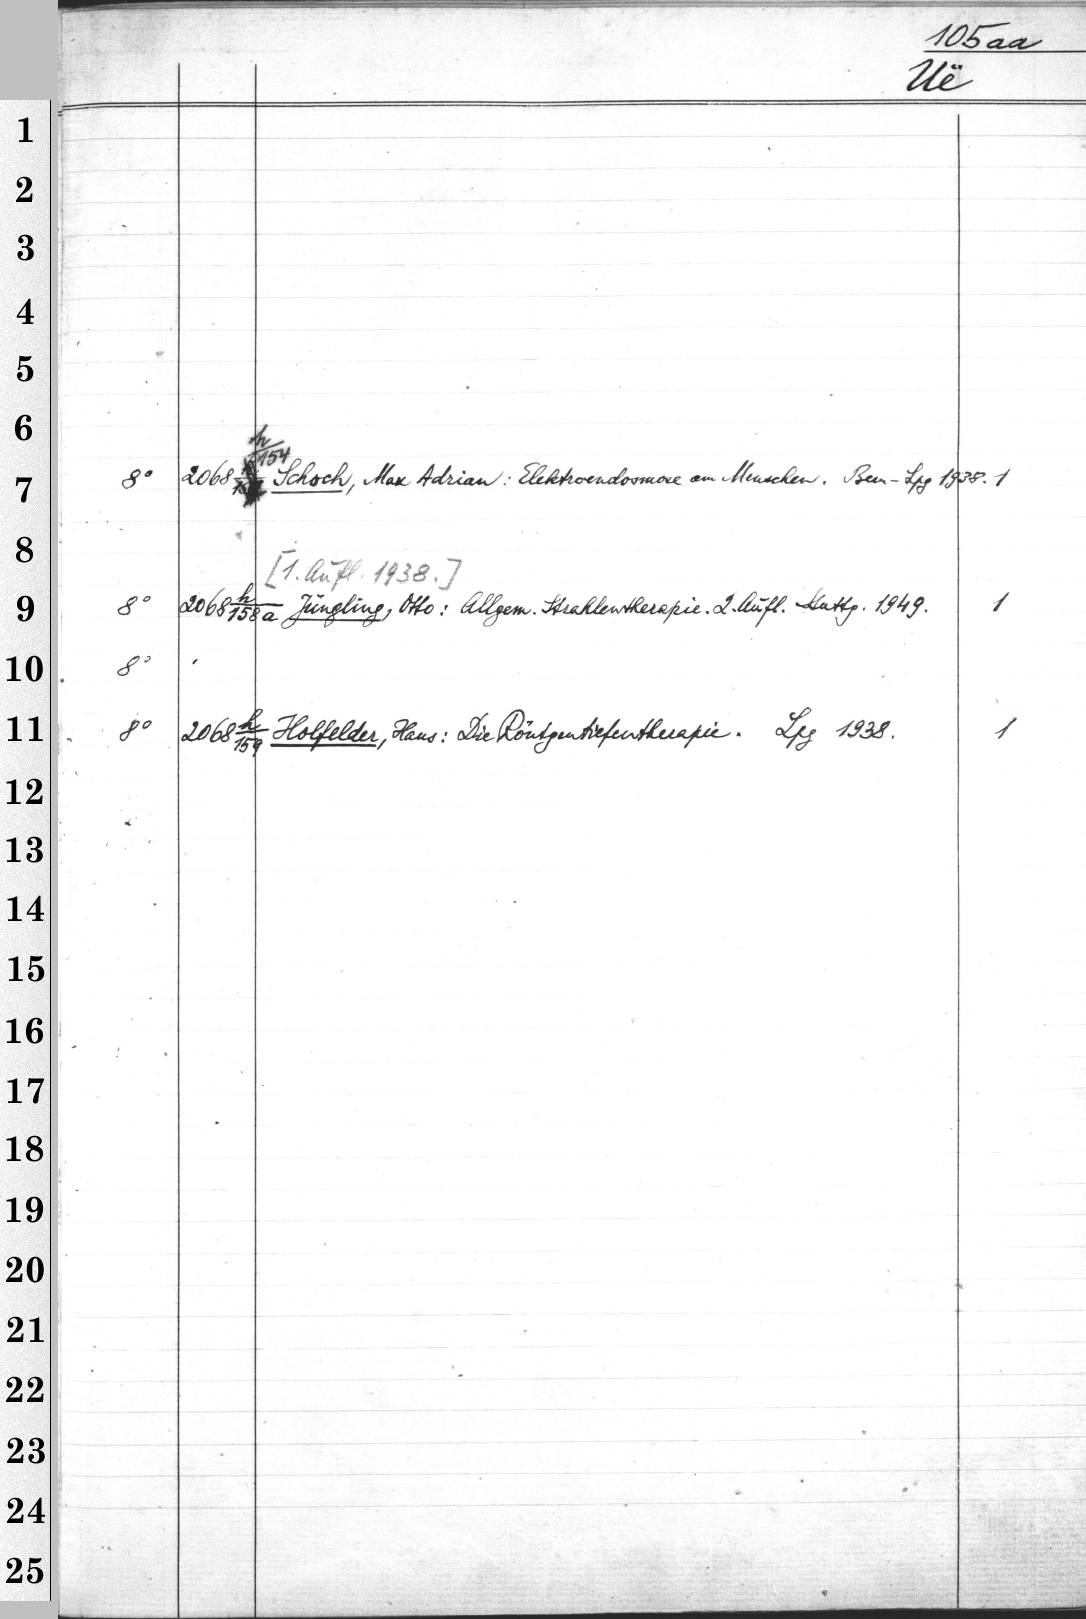 105aa
Uë
1
2
3
4
5
6
h/154
7 8° 2068 Schoch, Max Adrian: Elektroendosmose am Menschen. Bern-Lpg 1938. 1
8
[1. Aufl. 1938.]
9 8° 2068 h/158a Jüngling, Otto: Allgem. Strahlentherapie. 2. Aufl. Stuttg. 1949. 1
10 8°
11 8° 2068 h/159 Holfelder, Hans: Die Röntgentiefentherapie. Lpg 1938. 1
12
13
14
15
16
17
18
19
20
21
22
23
24
25